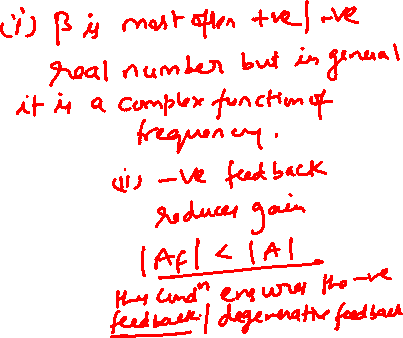 (i) β is most often +ve | -ve
real number but in general
it is a complex function of
frequency.
(ii) -ve feedback
reduces gain
|Af| < |A|
this condⁿ ensures the -ve
feedback | degenerative feedback